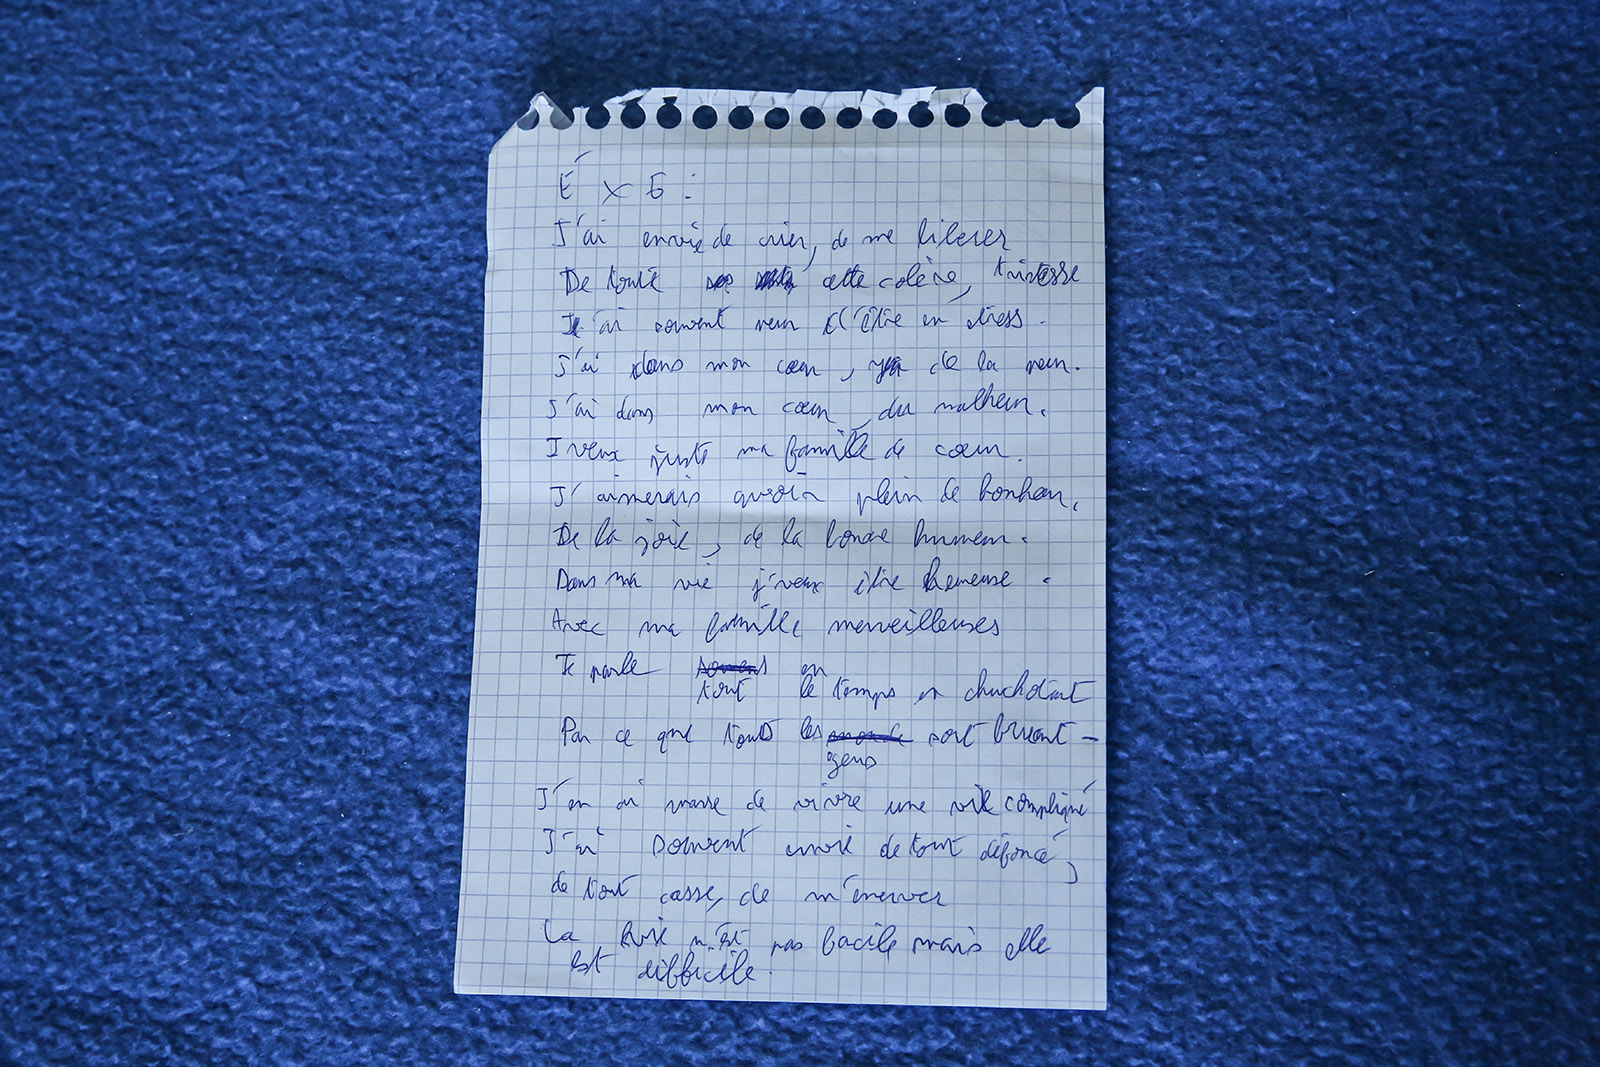 É x 6 :
J'ai envie de crier, de me liberer
De toute cette colère, tristesse
J'ai souvent peur d'être en stress.
J'ai dans mon cœur, de la peur.
J'ai dans mon cœur, du malheur.
J veux juste ma famille de cœur.
J'aimerais avoir plein de bonheur,
De la joie, de la bonne humeur.
Dans ma vie j'veux être heureuse.
Avec ma famille merveilleuses
Je parle en
tout le temps en chuchotant
Par ce que touts les sont bruant –
gens
J'en ai marre de vivre une vie compliqué
J'ai souvent envie de tout défoncé,
de tout casse, de m'énerver
La vie n'est pas facile mais elle
est difficile.